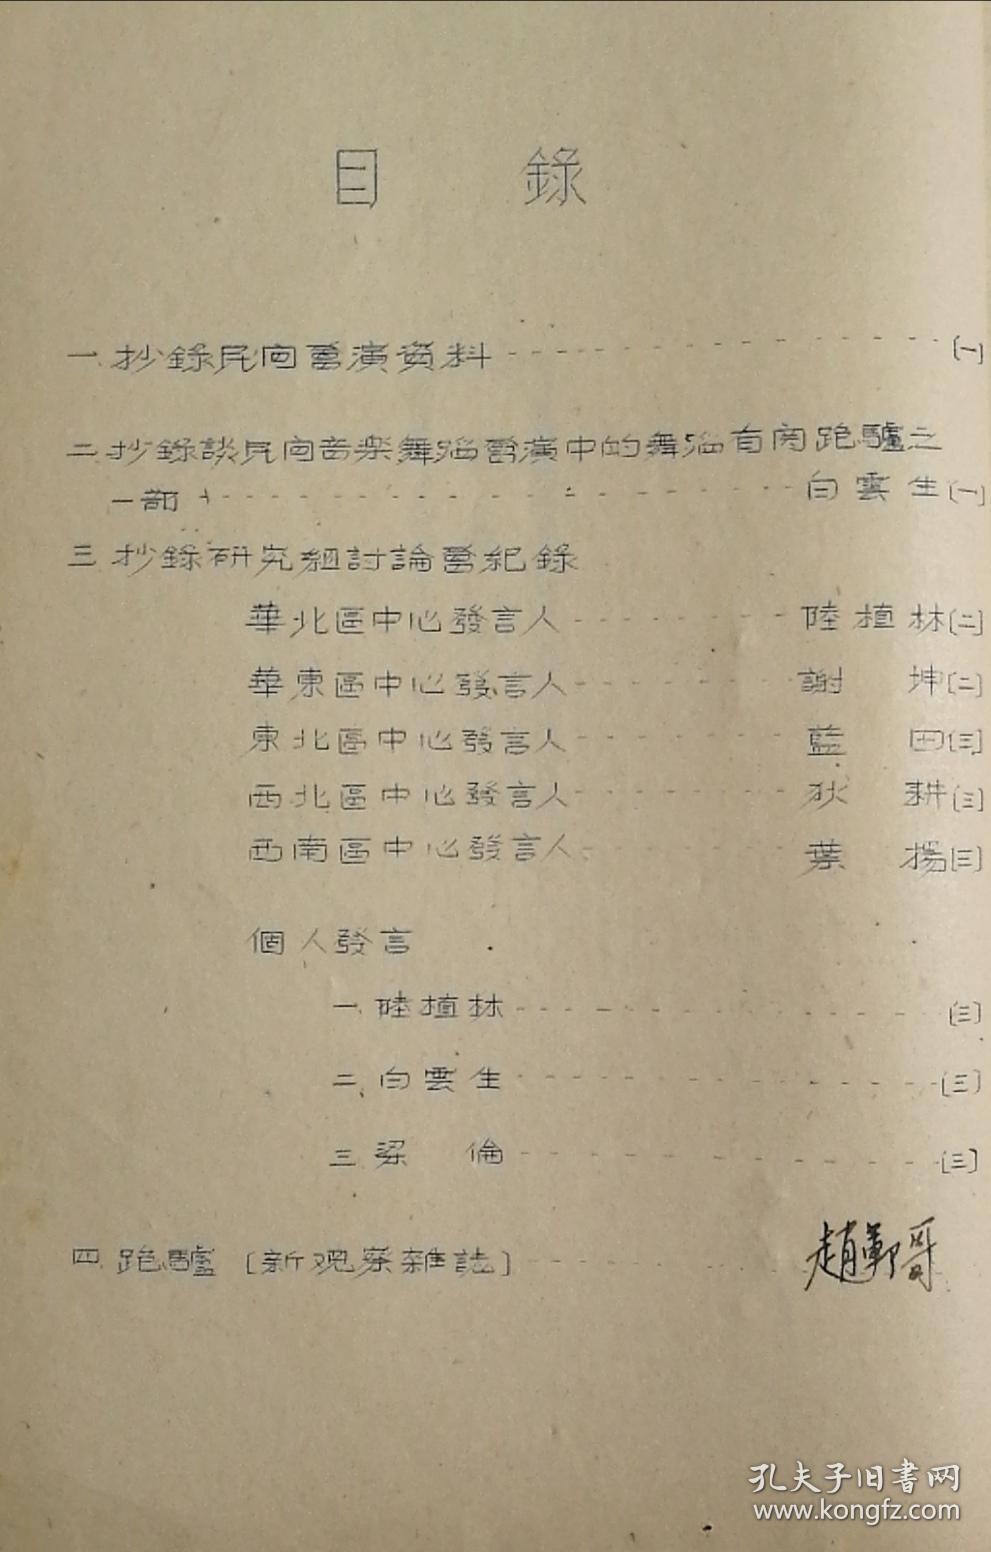 目 錄
一、抄錄民间會演資料 [一]
二、抄錄談民间音樂舞蹈會演中的舞蹈有関跑驢之
一部 白雲生[一]
三、抄錄研究組討論會紀錄
華北區中心發言人 陸植林[二]
華東區中心發言人 謝 坤[二]
東北區中心發言人 藍 田[三]
西北區中心發言人 狄 耕[三]
西南區中心發言人 葉 揚[三]
個人發言
一、陸植林 [三]
二、白雲生 [三]
三、梁 倫 [三]
四、跑驢 [新观察雜誌] 趙鄆哥
孔夫子旧书网
www.kongfz.com